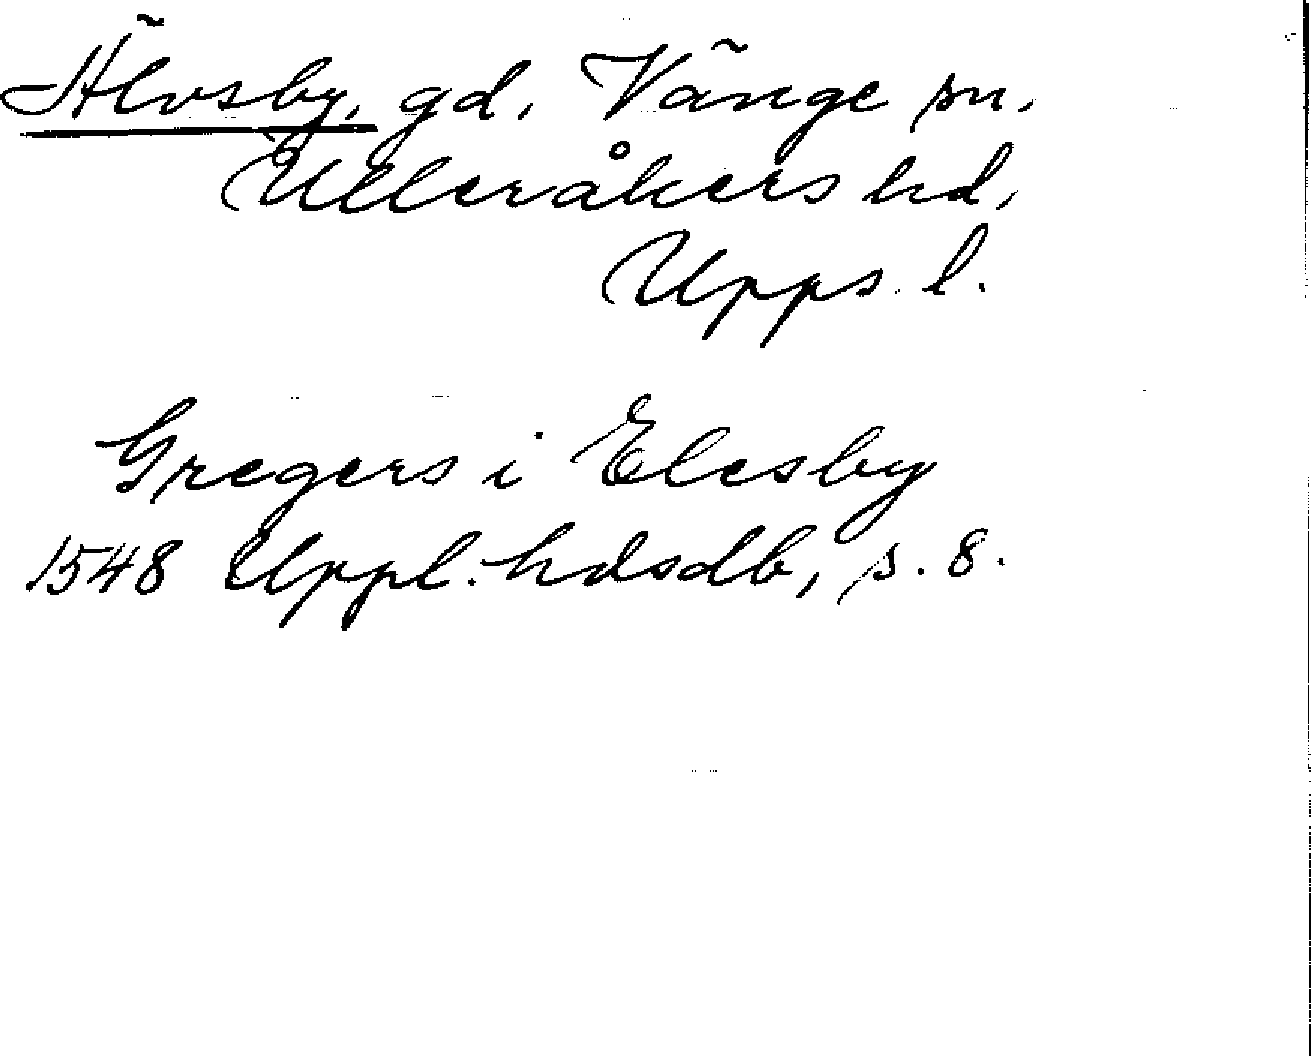 Älvsby, gd, Vänge sn,
Ulleråkers hd,
Upps. l.
Gregers i Elesby
1548 Uppl. hdsdb, s. 8.